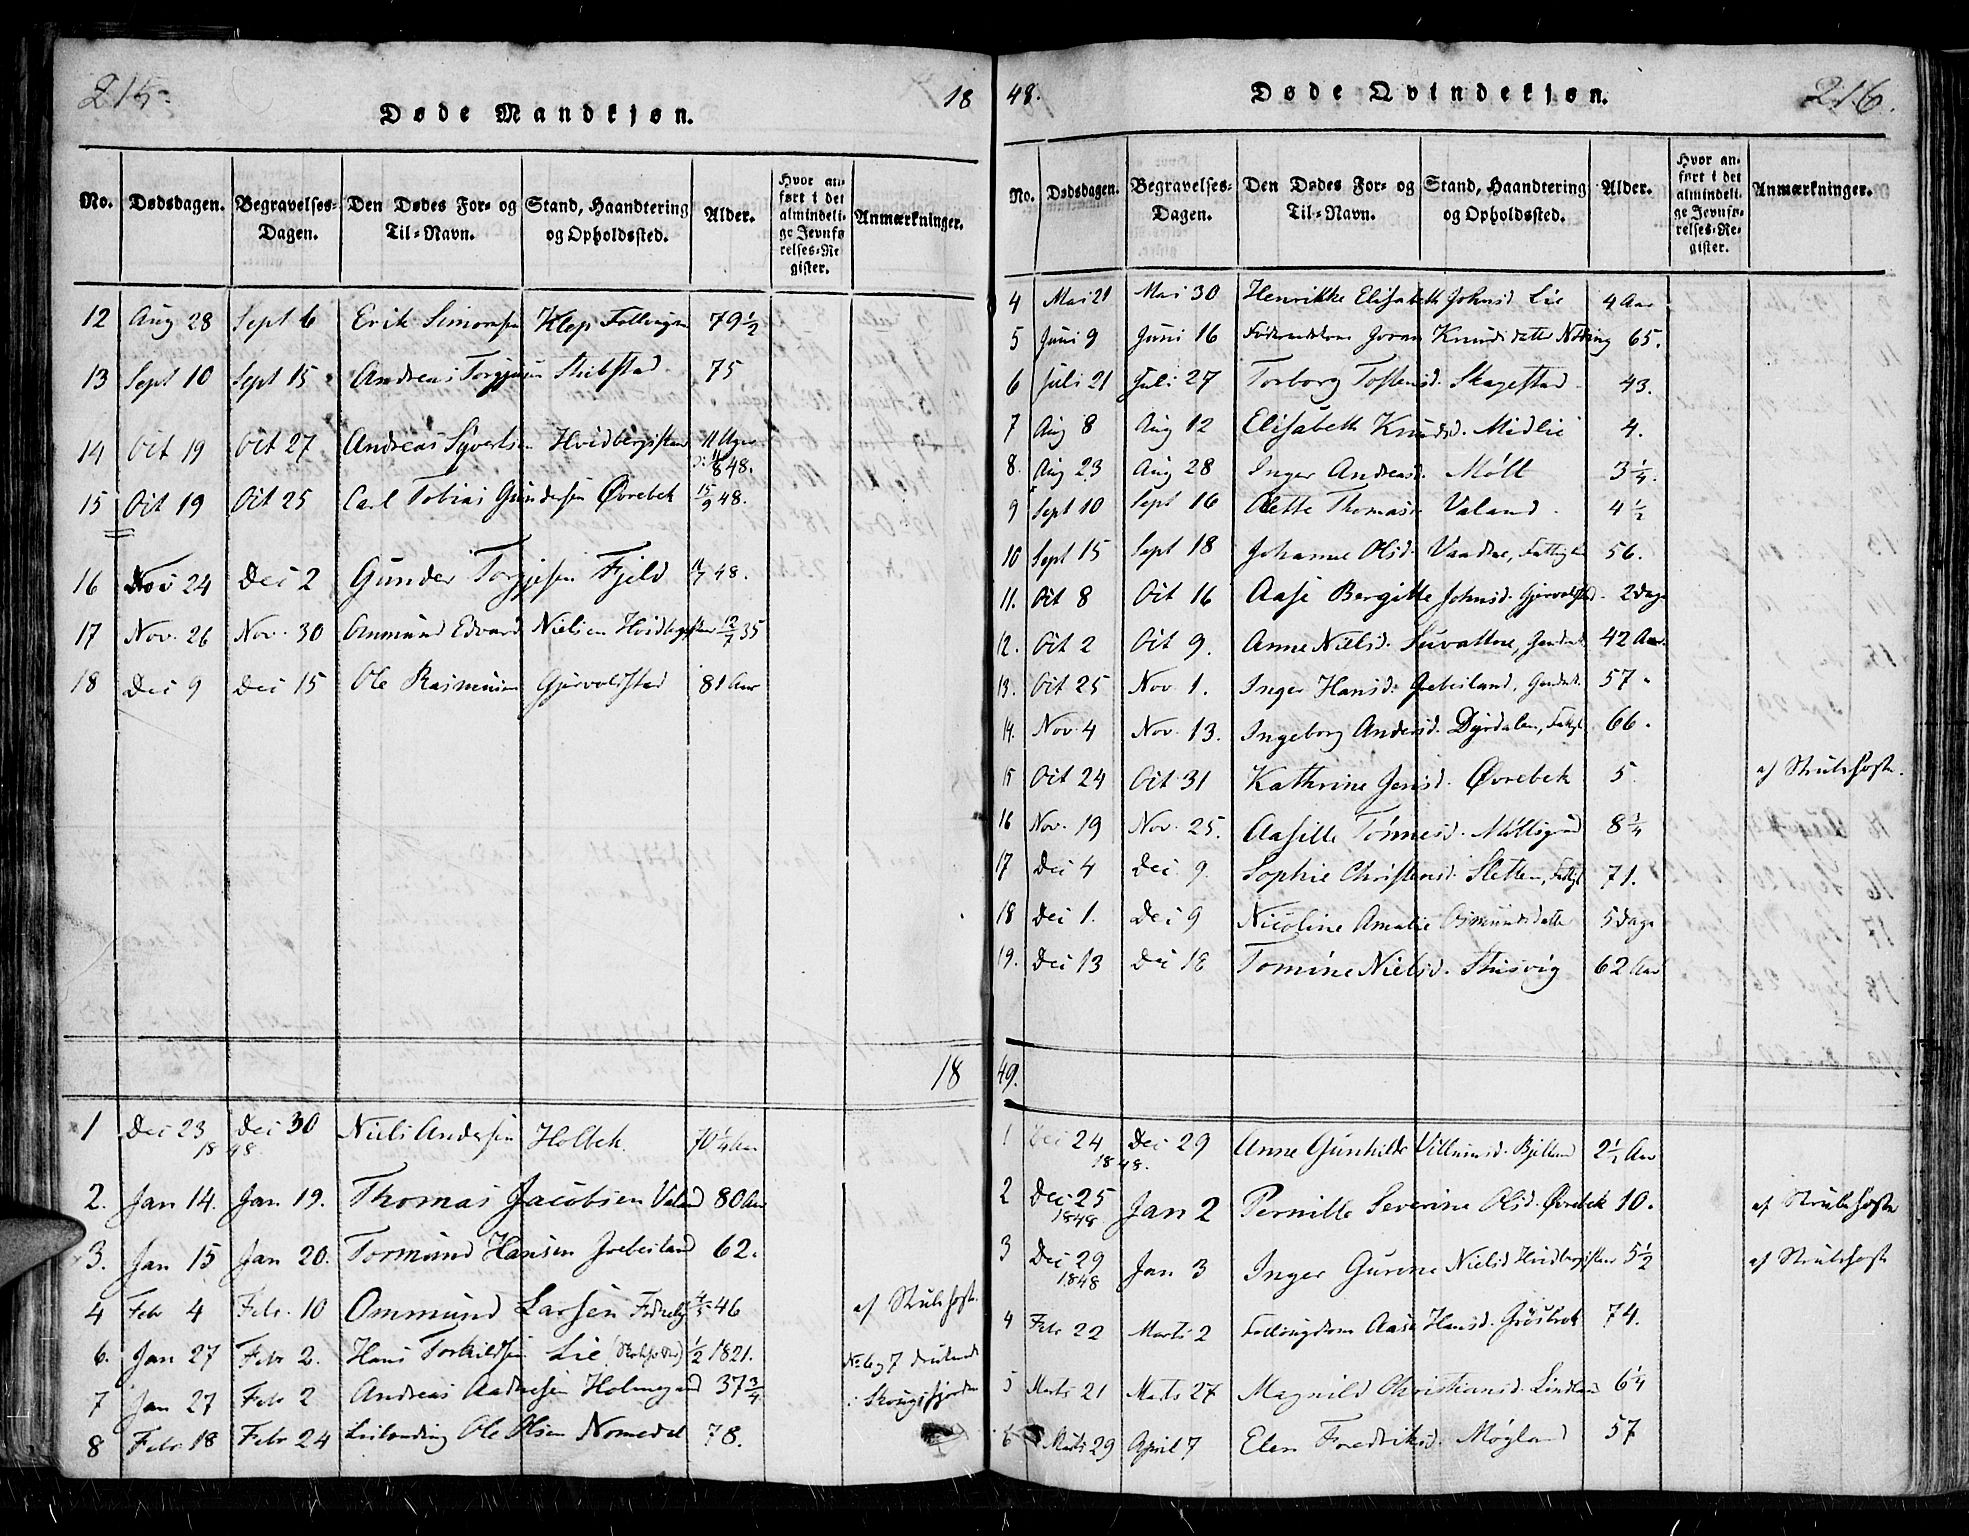 215.
Døde Mandkjøn.
18
No. Dødsdagen. Begravelses-Dagen. Den Dødes For- og Til-Navn. Stand, Haandtering og Opholdssted. Alder. Hvor anført i det almindelige Jevnførelses-Register. Anmærkninger.
12 Aug 28 Sept 6 Erik Simonsen Klep 79 1/2
13 Sept 10 Sept 15 Andreas Torgjusen Stubstad 75
14 Oct 19 Oct 27 Andreas Syvertsen 11 Uger
848.
15 Oct 19 Oct 25 Carl Tobias Gundersen Øvrebek 15/9 48.
16 Nov 24 Dec 2 Gunder Torgjesen Fjeld 48.
17 Nov. 26 Nov. 30 Ommund Edvard Nielsen 12/7 35
18 Dec 9 Dec 15 Ole Rasmusen Gjervoldstad 81 Aar
18
1 Dec 23 Dec 30 Niels Andersen Holbek. 70 1/4 Aar
18 48
2. Jan 14. Jan. 19. Thomas Jacobsen Valand 80 Aar
3. Jan 15 Jan 20. Tormund Hansen 62.
4 Febr 4 Febr. 10 Ommund Larsen 4/5 46 af Strubehoste
6. Jan 27 Febr 2. Hans Torkildsen Lie 1/2 1821. No 6 og 7 druknede
7 Jan 27 Febr 2 Andreas Aadnesen Holmegaard 37 3/4 i
8 Febr 18 Febr 24 Leilending Ole Olsen Nomedal 78.
48.
Døde Qvindekjøn.
216.
No. Dødsdagen. Begravelses-Dagen. Den Dødes For- og Til-Navn. Stand, Haandtering og Opholdssted. Alder. Hvor anført i det almindelige Jevnførelses-Register. Anmærkninger.
4 Mai 21 Mai 30 Henrikke Elisabeth Johnsd. Lie 4 Aar
5 Juni 9 Juni 16 Joran Knudsdatter 65.
6 Juli 21 Juli 27 Torborg Tostensd. Skagestad 43.
7 Aug 8 Aug 12 Elisabeth Knudsd. Midlie 4.
8. Aug 23 Aug 28 Inger Andreasd. 3 1/4.
9 Sept 10 Sept 16 Olette Thomasd. Valand. 4 1/2
10 Sept 15 Sept 18 Johanne Olsd. 56.
11. Oct 8 Oct 16 Aase Bergitte Johnsd. Gjervoldstad. 2 Dage
12. Oct 2 Oct 9. Anne Nielsd. 42 Aar.
13. Oct 25 Nov. 1. Inger Hansd. 57
14. Nov. 4 Nov. 13. Ingeborg Andersd. Dyrdalen, 66.
15 Oct 24 Oct 31 Kathrine Jensd. Øvrebek 5. af Strubehoste.
16 Nov. 19 Nov. 25. Aasille Tønnesd. 8 1/4
17 Dec 4 Dec. 9. Sophie Christensd. Sletten, 71.
18 Dec 1. Dec 9 Nicoline Amalie Osmundsdatter 5 Dage
19. Dec 13 Dec 18 Tomine Nielsd. Stusvig 62 Aar
49.
1 Dec 24 Dec 29 Anne Gunhilde Villumsd. 2 1/2 Aar
1848.
2 Dec 25 Jan 2 Pernille Severine Olsd. Øvrebek 10. af Strubehoste
1848
3 Dec 29 Jan 3 Inger Gurine Nielsd 5 1/2 af Strubehoste
1848
4 Febr 22 Marts 2 Aase Hansd. 74.
5 Marts 21 Marts 27 Magnild Christiansd. Lindland 6 1/4
6 Marts 29 April 7 Elen Fredriksd. Møgland 57